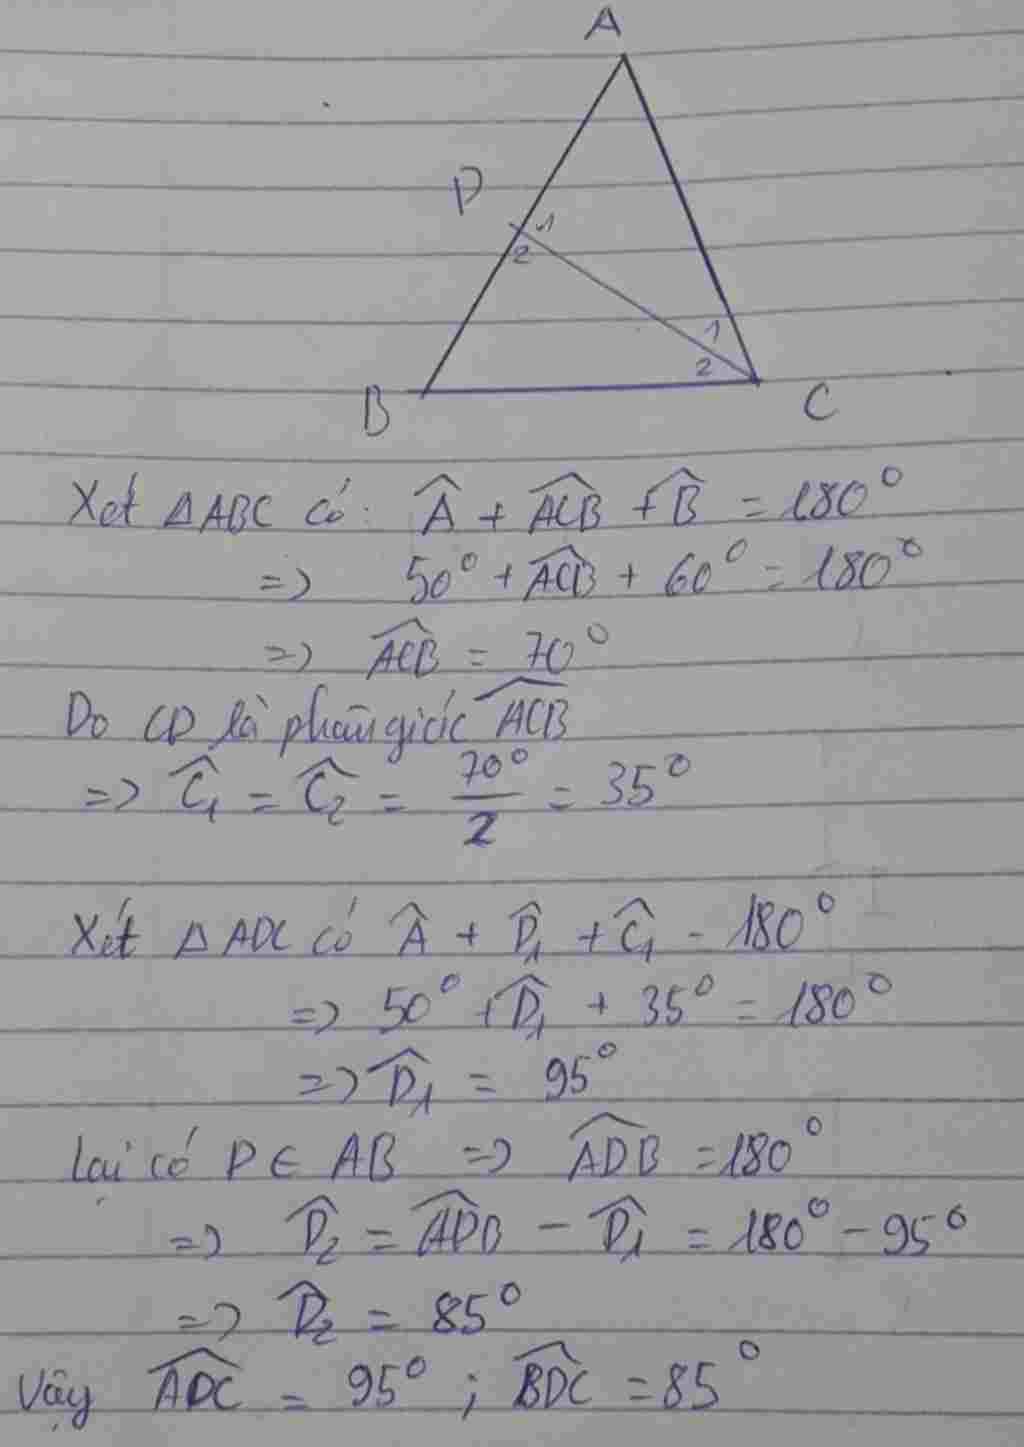 A
D
1
2
1
2
B
C
Xét ΔABC có: Â + \widehat{ACB} + \widehat{B} = 180°
=> 50° + \widehat{ACB} + 60° = 180°
=> \widehat{ACB} = 70°
Do CD là phân giác \widehat{ACB}
=> \widehat{C}₁ = \widehat{C}₂ = 70°/2 = 35°
Xét Δ ADC có Â + \widehat{D}₁ + \widehat{C}₁ = 180°
=> 50° + \widehat{D}₁ + 35° = 180°
=> \widehat{D}₁ = 95°
Lại có D ∈ AB => \widehat{ADB} = 180°
=> \widehat{D}₂ = \widehat{ADB} - \widehat{D}₁ = 180° - 95°
=> \widehat{D}₂ = 85°
Vậy \widehat{ADC} = 95° ; \widehat{BDC} = 85°